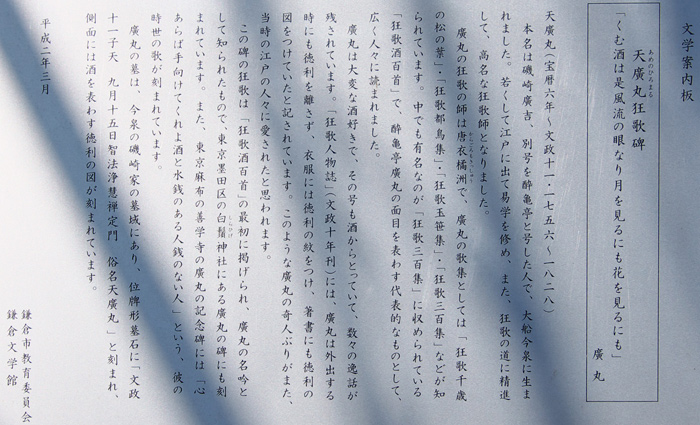 文学案内板
天廣丸狂歌碑
あめのひろまる
「くむ酒は是風流の眼なり月を見るにも花を見るにも」
廣丸
天廣丸（宝暦六年〜文政十一・一七五六〜一八二八）
本名は磯崎廣吉、別号を酔亀亭と号した人で、大船今泉に生ま
れました。若くして江戸に出て易学を修め、また、狂歌の道に精進
して、高名な狂歌師となりました。
廣丸の狂歌の師は唐衣橘洲で、廣丸の歌集としては「狂歌千歳
からごろもきっしゅう
の松の葉」・「狂歌都鳥集」・「狂歌玉笹集」・「狂歌三百集」などが知
られています。中でも有名なのが「狂歌三百集」に収められている
「狂歌酒百首」で、酔亀亭廣丸の面目を表わす代表的なものとして、
広く人々に読まれました。
廣丸は大変な酒好きで、その号も酒からとっていて、数々の逸話が
残されています。「狂歌人物誌」（文政十年刊）には、廣丸は外出する
時にも徳利を離さず、衣服には徳利の紋をつけ、著書にも徳利の
図をつけていたと記されています。このような廣丸の奇人ぶりがまた、
当時の江戸の人々に愛されたと思われます。
この碑の狂歌は「狂歌酒百首」の最初に掲げられ、廣丸の名吟と
して知られたもので、東京墨田区の白鬚神社にある廣丸の碑にも刻
しらひげ
まれています。また、東京麻布の善学寺の廣丸の記念碑には「心
あらば手向けてくれよ酒と水銭のある人銭のない人」という、彼の
時世の歌が刻まれています。
廣丸の墓は、今泉の磯崎家の墓域にあり、位牌形墓石に「文政
十一子天　九月十五日智法浄慧禅定門　俗名天廣丸」と刻まれ、
側面には酒を表わす徳利の図が刻まれています。
平成二年三月
鎌倉市教育委員会
鎌倉文学館